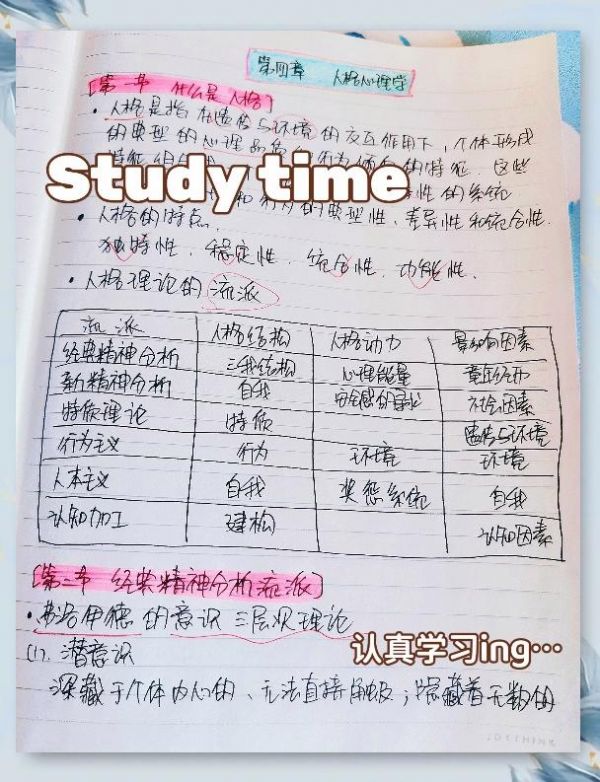 第四章 人格心理学
[第一节 什么是人格]
• 人格是指在遗传与环境的交互作用下,个体形成
的典型的心理品质和行为倾向的特征
这些
Study time
性的系统
的典型性、差异性和统合性.
• 人格的特点.
独特性、稳定性、统合性、功能性.
• 人格理论的流派
流派 人格结构 人格动力 影响因素
经典精神分析 三我结构 心理能量 童年经历
新精神分析 自我 安全感的寻求 社会因素
特质理论 特质 遗传与环境
行为主义 行为 环境 环境
人本主义 自我 奖惩系统 自我
认知加工 建构 认知因素
[第二节 经典精神分析流派]
• 弗洛伊德的意识三层次理论
(1). 潜意识
认真学习ing…
深藏于个体内心的、无法直接触及;隐藏着无数的